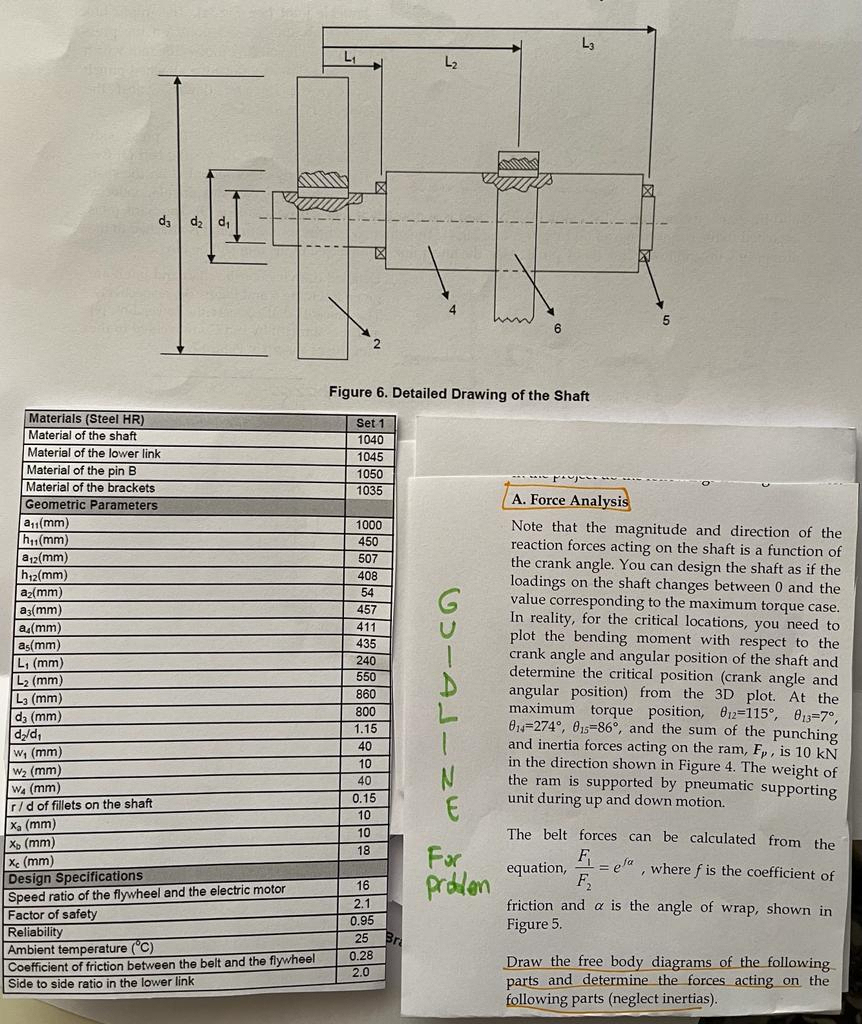 L₁
L₂
L₃
d₃
d₂
d₁
4
6
5
2
Figure 6. Detailed Drawing of the Shaft
Materials (Steel HR) Set 1
Material of the shaft 1040
Material of the lower link 1045
Material of the pin B 1050
Material of the brackets 1035
Geometric Parameters
a₁₁(mm) 1000
h₁₁(mm) 450
a₁₂(mm) 507
h₁₂(mm) 408
a₂(mm) 54
a₃(mm) 457
a₄(mm) 411
a₅(mm) 435
L₁ (mm) 240
L₂ (mm) 550
L₃ (mm) 860
d₃ (mm) 800
d₂/d₁ 1.15
w₁ (mm) 40
w₂ (mm) 10
w₄ (mm) 40
r / d of fillets on the shaft 0.15
xₐ (mm) 10
x_b (mm) 10
x_c (mm) 18
Design Specifications
Speed ratio of the flywheel and the electric motor 16
Factor of safety 2.1
Reliability 0.95
Ambient temperature (°C) 25
Coefficient of friction between the belt and the flywheel 0.28
Side to side ratio in the lower link 2.0
GUIDLINE
For
problem
A. Force Analysis
Note that the magnitude and direction of the
reaction forces acting on the shaft is a function of
the crank angle. You can design the shaft as if the
loadings on the shaft changes between 0 and the
value corresponding to the maximum torque case.
In reality, for the critical locations, you need to
plot the bending moment with respect to the
crank angle and angular position of the shaft and
determine the critical position (crank angle and
angular position) from the 3D plot. At the
maximum torque position, θ₁₂=115°, θ₁₃=7°,
θ₁₄=274°, θ₁₅=86°, and the sum of the punching
and inertia forces acting on the ram, Fₚ, is 10 kN
in the direction shown in Figure 4. The weight of
the ram is supported by pneumatic supporting
unit during up and down motion.
The belt forces can be calculated from the
equation, F₁/F₂ = e^{fα}, where f is the coefficient of
friction and α is the angle of wrap, shown in
Figure 5.
Draw the free body diagrams of the following
parts and determine the forces acting on the
following parts (neglect inertias).